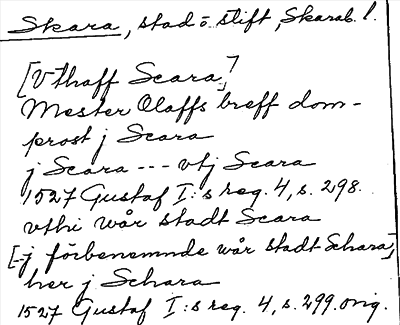 Skara, stad o. stift, Skarab. l.
[Vthaff Scara,]
Mester Olaffs breff dom-
prost j Scara
j Scara --- vtj Scara
1527 Gustaf I:s reg. 4, s. 298.
vthi wår stadt Scara
[-j förbenemnde wår stadt Schara,]
her j Schara
1527 Gustaf I:s reg. 4, s. 299. orig.